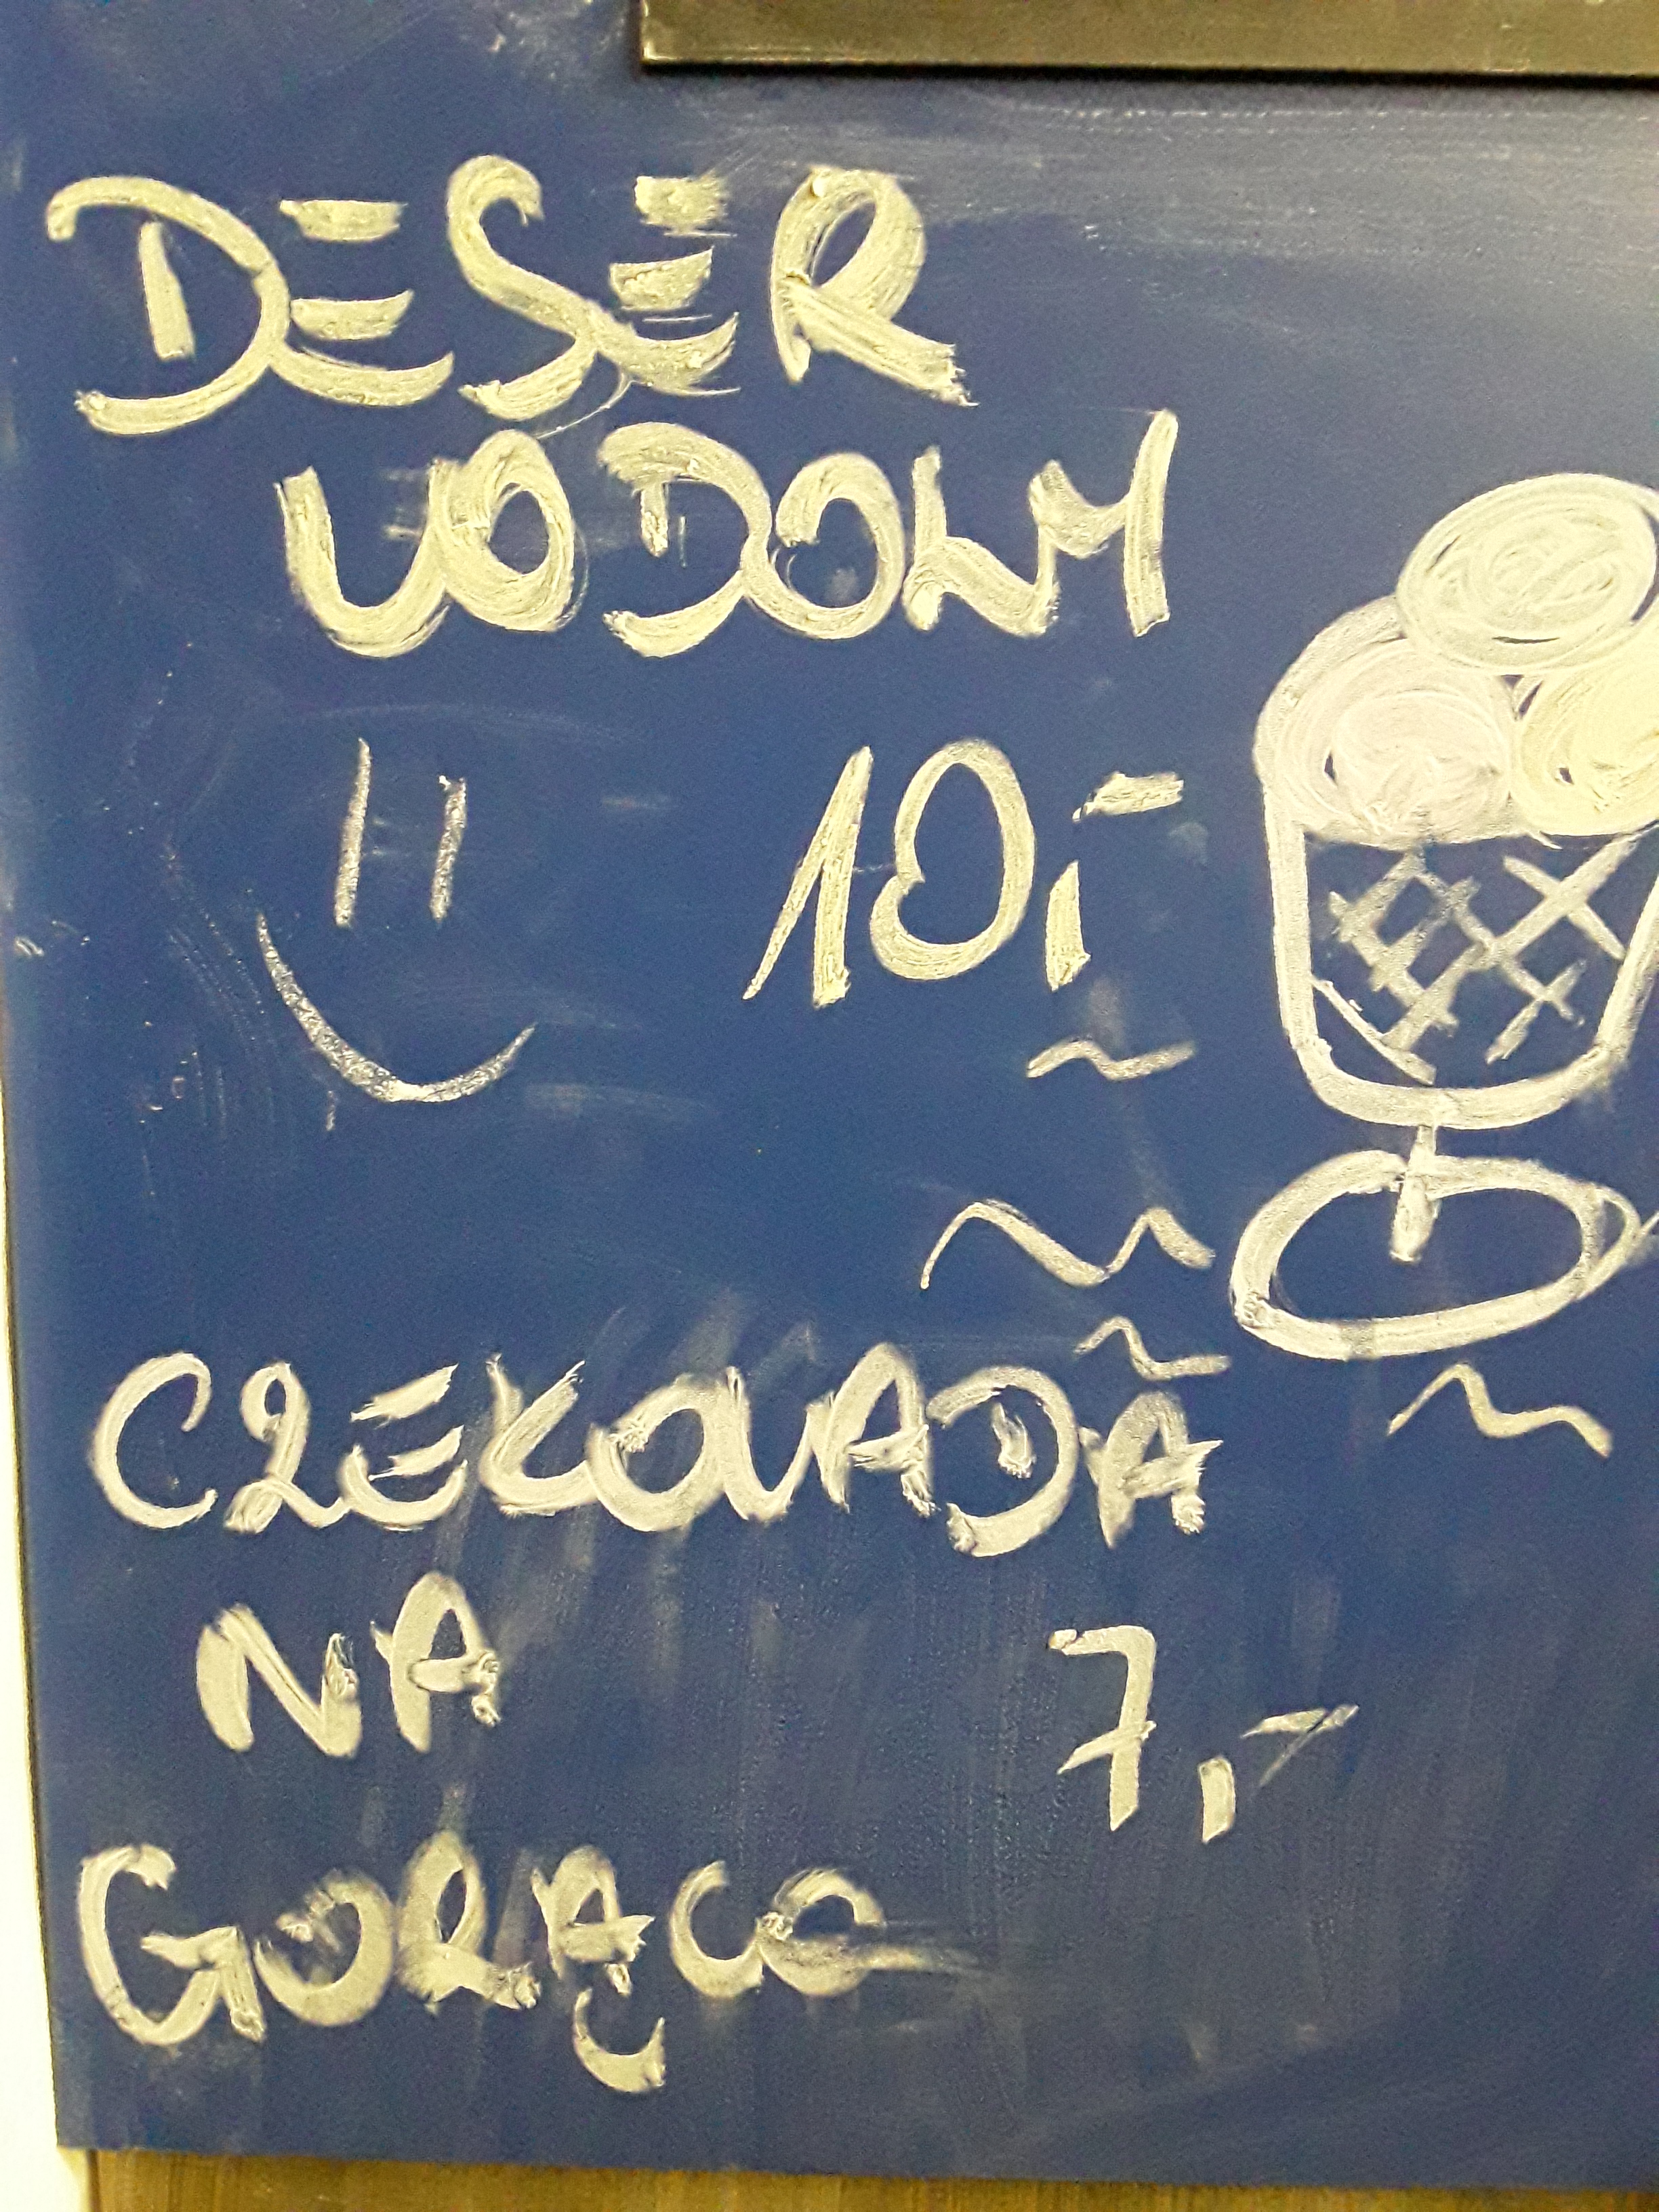 DESER
LODOWY
10,-
CZEKOLADA
NA 7,-
GORĄCO